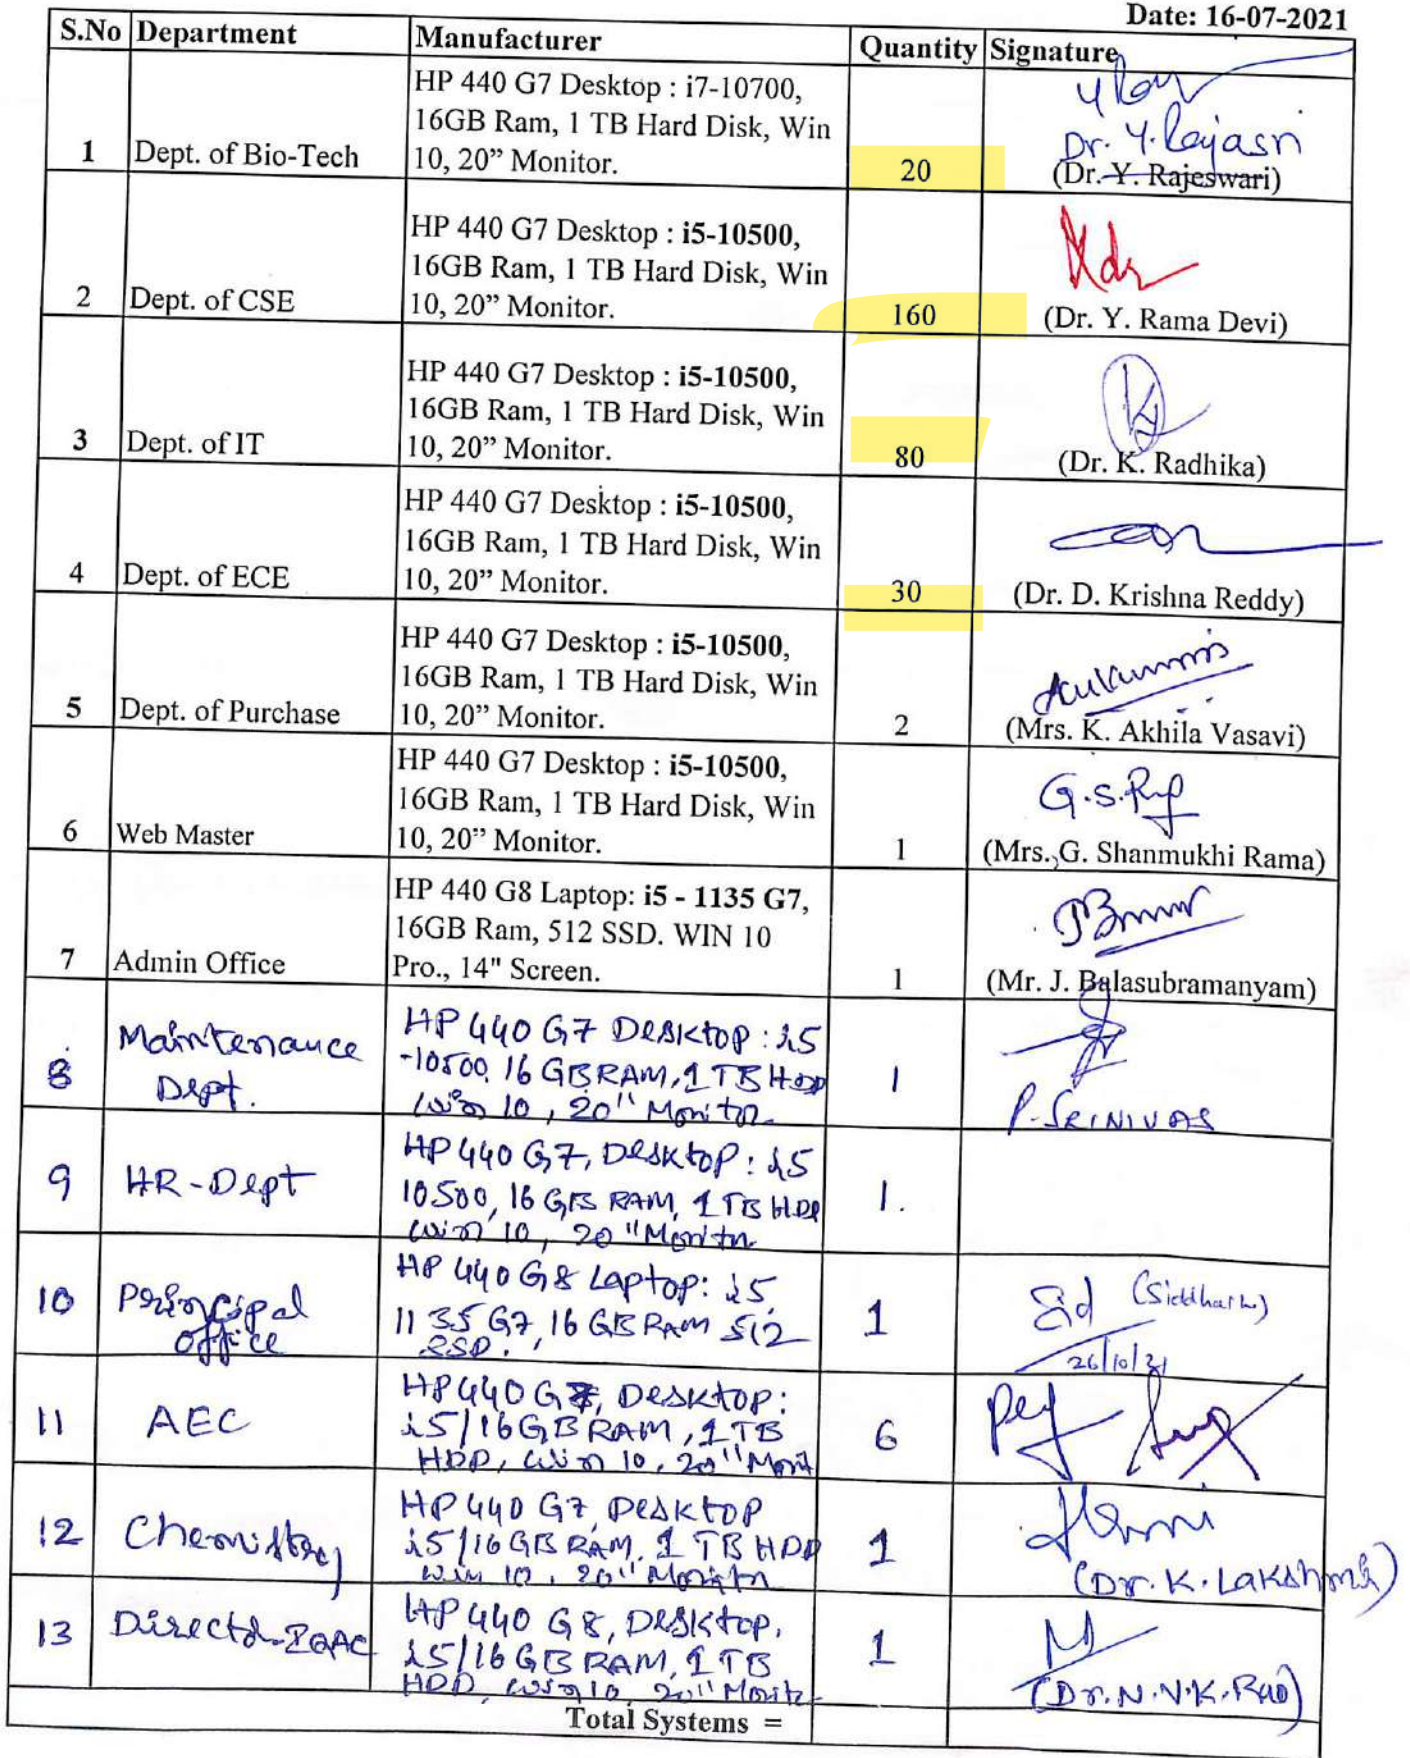 Date: 16-07-2021
S.No Department Manufacturer Quantity Signature
HP 440 G7 Desktop : i7-10700,
16GB Ram, 1 TB Hard Disk, Win
10, 20” Monitor.
1 Dept. of Bio-Tech 20
Dr. Y. Rajasri
(Dr. Y. Rajeswari)
HP 440 G7 Desktop : i5-10500,
16GB Ram, 1 TB Hard Disk, Win
10, 20” Monitor.
2 Dept. of CSE 160 (Dr. Y. Rama Devi)
HP 440 G7 Desktop : i5-10500,
16GB Ram, 1 TB Hard Disk, Win
10, 20” Monitor.
3 Dept. of IT 80 (Dr. K. Radhika)
HP 440 G7 Desktop : i5-10500,
16GB Ram, 1 TB Hard Disk, Win
10, 20” Monitor.
4 Dept. of ECE 30 (Dr. D. Krishna Reddy)
HP 440 G7 Desktop : i5-10500,
16GB Ram, 1 TB Hard Disk, Win
10, 20” Monitor.
5 Dept. of Purchase 2 (Mrs. K. Akhila Vasavi)
HP 440 G7 Desktop : i5-10500,
16GB Ram, 1 TB Hard Disk, Win
10, 20” Monitor.
6 Web Master 1 (Mrs. G. Shanmukhi Rama)
HP 440 G8 Laptop: i5 - 1135 G7,
16GB Ram, 512 SSD. WIN 10
Pro., 14" Screen.
7 Admin Office 1 (Mr. J. Balasubramanyam)
8 Maintenance
Dept.
HP 440 G7 Desktop : i5
-10500, 16 GB RAM, 1 TB HDD
Win 10, 20" Monitor
1
P. SRINIVAS
9 HR-Dept
HP 440 G7, Desktop : i5
10500, 16 GB RAM, 1 TB HDD
Win 10, 20" Monitor
1.
10 Principal
office
HP 440 G8 Laptop: i5
1135 G7, 16 GB RAM 512
SSD.
1
Sid (Siddharth)
26/10/21
11 AEC
HP 440 G7, Desktop:
i5/16GB RAM, 1 TB
HDD, Win 10, 20" Monit
6
12 Chemistry
HP 440 G7, Desktop
i5/16 GB RAM, 1 TB HDD
Win 10, 20" Monitor
1
(Dr. K. Lakshmi)
13 Director-IQAC
HP 440 G8, Desktop,
i5/16 GB RAM, 1 TB
HDD, Win 10, 20" Monitor
1
(Dr. N.V.K. Rao)
Total Systems =